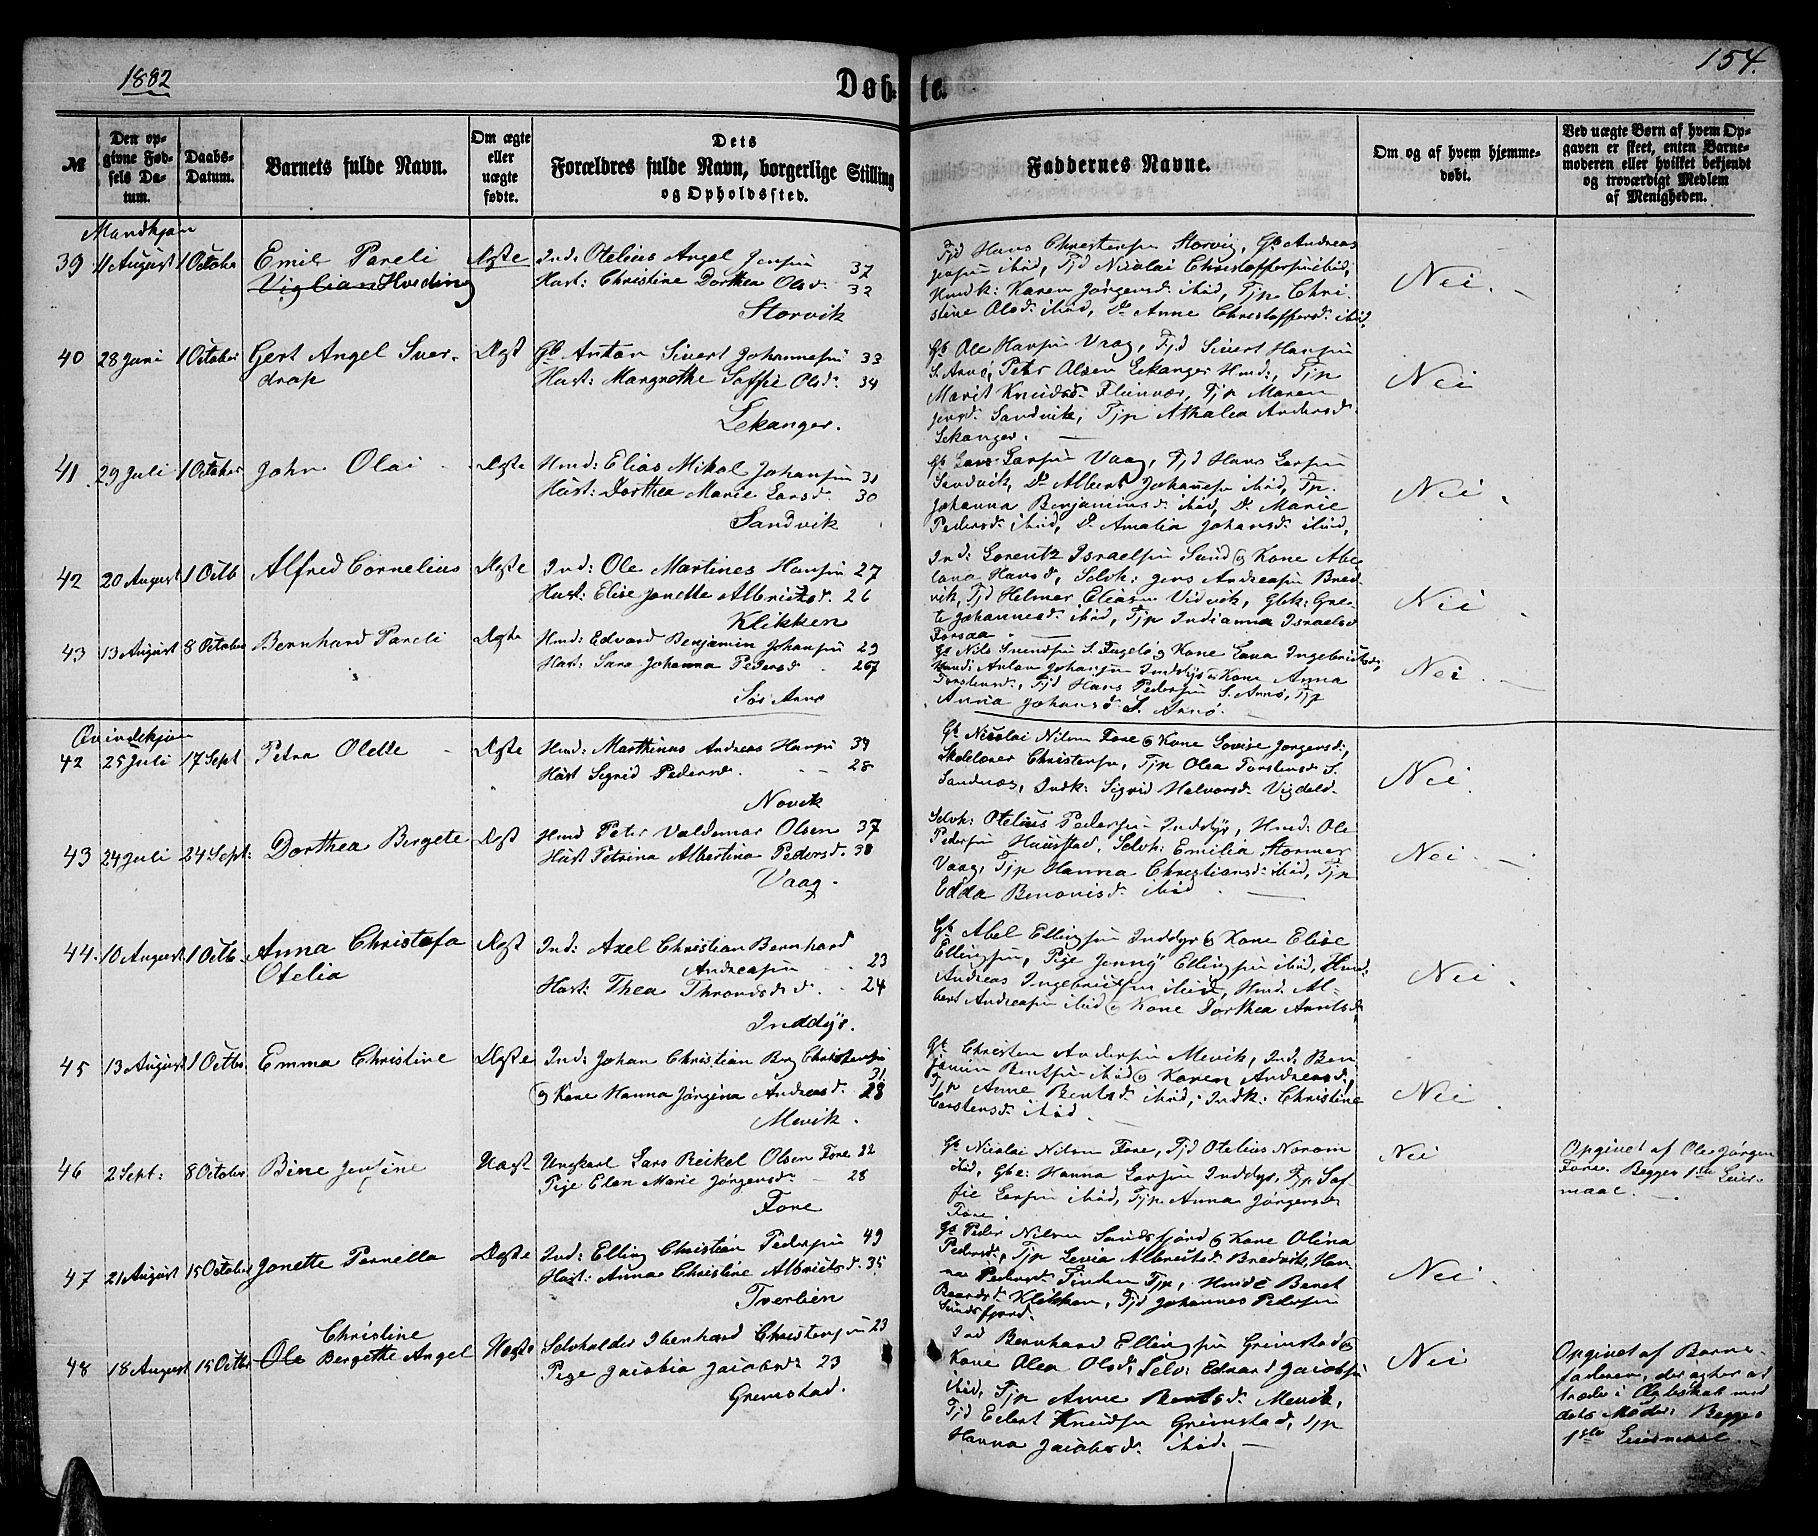 1882
Døbte.
154.
№
Den opgivne Fødsels Datum.
Daabs-Datum.
Barnets fulde Navn.
Om ægte eller uægte fødte.
Dets Forældres fulde Navn, borgerlige Stilling og Opholdssted.
Faddernes Navne.
Om og af hvem hjemmedøbt.
Ved uægte Børn af hvem Opgaven er skeet, enten Barnemoderen eller hvilket bekjendt og troværdigt Medlem af Menigheden.
Mandkjøn
39 11 August 1 October Emil Pareli Ægte Ind: Otelius Angel Jensen 37
Hveding Hust: Christine Dorthea Olsd. 32
Storvik
Tjd Hans Christensen Storvig, Gb Andreas
Jensen ibid, Tjd Nicolai Christoffersen ibid,
Hmdk: Karen Jørgensd. ibid, Tjp Chri-
stine Olsd. ibid, Do Anne Christoffersd. ibid.
Nei
40 28 Juni 1 October Gert Angel Sver- Ægt Gb Anton Sivert Johannesen 33
drup Hust: Margrethe Soffie Olsd. 34
Lekanger.
Gb Ole Hansen Vaag, Tjd Sivert Hansen
S. Arnø, Peter Olsen Lekanger Hmd:, Tjp
Marit Knudsd. Fleinvær, Tjp Maren
Jensd. Sandvik, Tjp Athalia Andersd.
Lekanger.
Nei
41 29 Juli 1 October John Olai Ægte Hmd: Elias Mikal Johansen 31
Hust: Dorthea Marie Larsd. 30
Sandvik
Gb Lars Larsen Vaag, Tjd Hans Larsen
Sandvik, Do Albert Johansen ibid, Tp.
Johanna Benjaminsd. ibid, Do Marie
Pedersd. ibid, Do Amalia Johansd. ibid,
Nei
42 20 August 1 Octb Alfred Cornelius Ægte Ind: Ole Martines Hansen 27
Hust: Elise Jonette Albrictsd. 26
Klikken
Ind: Lorentz Israelsen Sund og Kone Abe-
lana Hansd, Selvk: Jens Andreasen Bred-
vik, Tjd Helmer Eliasen Vidvik, Gbk: Gre-
te Johannesd. ibid, Tjp Indianna Israelsd
Forsaa
Nei
43 13 August 8 October Bernhard Pareli Ægte Hmd: Edvard Benjamin Johansen 29
Hust: Sara Johanna Pedersd. 267
Sør Arnø
Gb Nils Svendsen S. Fugelø og Kone Lava Ingebrictsd.,
Hmd: Anton Johansen Inddyr og Kone Anna
Torstensd., Tjd Hans Pedersen S. Arnø, Tjp
Anna Johansd S. Arnø.
Nei
Qvindekjøn
42 25 Juli 17 Sept Petra Olette Ægte Hmd: Marthinus Andreas Hansen 39
Hust Sigrid Pedersd. 28
Novik
Gb Nicolai Nilsen Fore og Kone Lovise Jørgensd.,
Skolelærer Christensen, Tjp Olea Torstensd. S.
Sandnæs, Indk: Sigrid Halvorsd. Vigdeld.
Nei
43 24 Juli 24 Sept: Dorthea Bergete Ægt Hmd Peter Valdemar Olsen 37
Hust Petrina Albertina Pedersd. 38
Vaag.
Selvk: Otelius Pedersen Inddyr, Hmd: Ole
Pedersen Haustad, Selvk: Emilia Stormer
Vaag, Tjp Hanna Christiansd. ibid, Tjp
Edda Benonisd. ibid
Nei
44. 10 August 1 Octb. Anna Christofa Ægt Ind: Axel Christian Bernhard
Otelia Andreasen 23
Hust: Thea Throndsd. 24
Inddyr.
Gb Abel Ellingsen Inddyr og Kone Elise
Ellingsen, Pige Jenny Ellingsen ibid, Hmd:
Andreas Ingebrictsen ibid, Hmd. Al-
bert Andreasen ibid og Kone Dorthea Arntsd.
Nei
45 13 August 1 Octb. Emma Christine Ægte Ind: Johan Christian Brg Christensen
31
og Kone Hanna Jørgina Andreasd. 28
Mevik.
Gb Christen Andersen Mevik, Ind. Ben-
jamin Bentsen ibid og Karen Andreasd.,
Tjp Anne Bentsd. ibid, Indk: Christine
Carstensd. ibid.
Nei
46 2 Sept: 8 October Bine Jensine Uægt Ungkarl Lars Reikel Olsen Fore 22
Pige Elen Marie Jørgensd. 28
Fore
Gb Nicolai Nilsen Fore, Tjd Otelius Norom
ibid, Gbe: Hanna Larsen Inddyr, Tjp Sof-
fie Larsen ibid, Tjp Anna Jørgensd
Fore.
Nei
Opgivet af Ole Jørgen
Fore. Begges 1ste Leier-
maal.
47 21 August 15 October Jonette Pernella Ægte Ind: Elling Christian Pedersen 49
Hust: Anna Christine Albrictsd. 35
Tverlien
Gb Peder Nilsen Sundsfjord og Kone Olina
Pedersd., Tjp Levia Albrictsd. Bredvik, Han-
na Pedersd. Tjp, Hmd: Beret
Baardsd. Klikken, Tjd Johannes Pedersen
Sundsfjord.
Nei
48 18 August 15 Octb. Christine
Ole Bergette Angel Uægte Selvholder Ibenhard Christensen 23
Pige Jacobia Jacobsd. 23
Grimstad.
Ind Bernhard Ellingsen Grimstad og
Kone Olea Olsd., Selv: Edvard Jacobsen
ibid, Tjp Anne Bentsd. Mevik,
Tjd Eilert Knudsen Grimstad, Tjp
Hanna Jacobsd. ibid.
Nei
Opgivet af Barne-
faderen, der agter at
træde i Ægteskab med
dets Moder: Begges
1ste Leiermaal